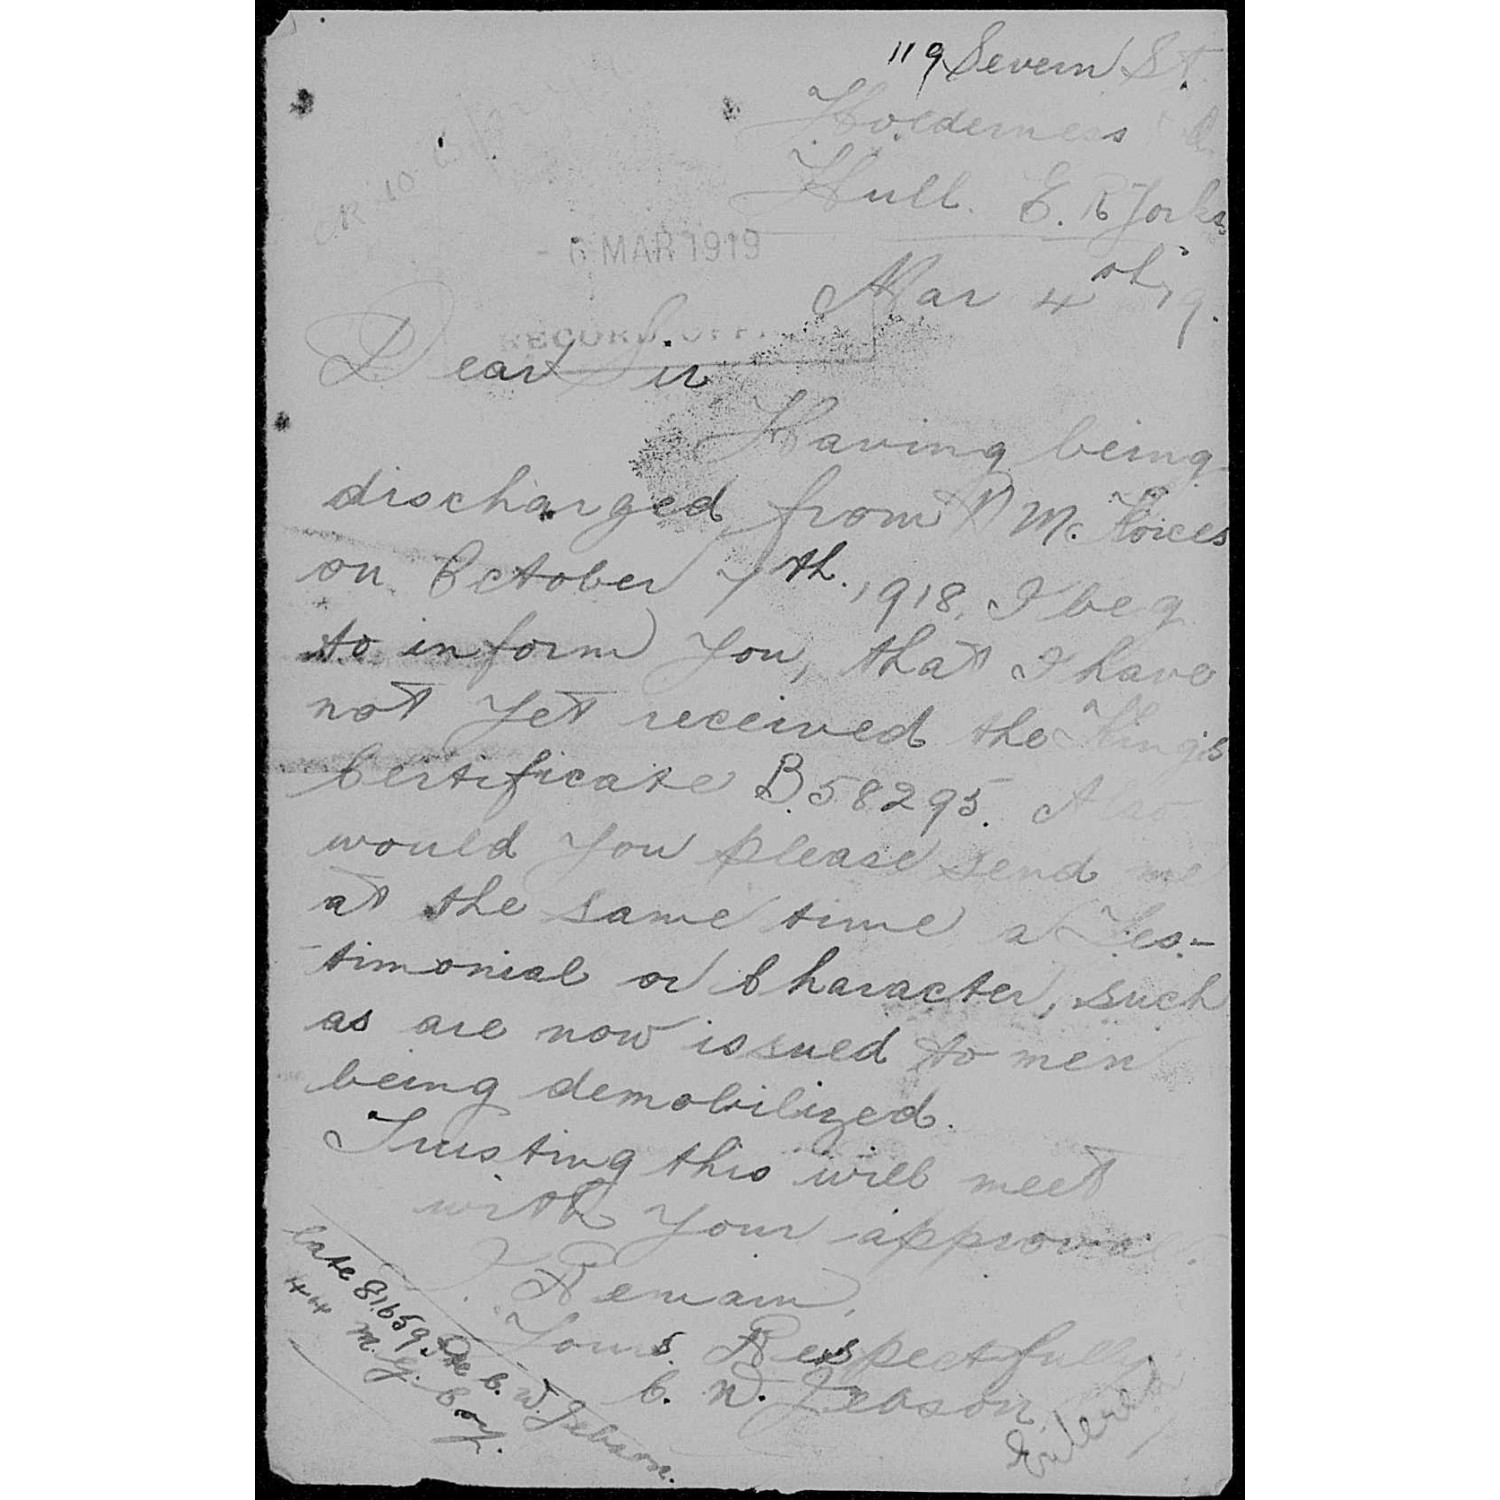 119 Severn St.
Holderness
Hull. E. R Yorks
- 6 MAR 1919
Mar 4th 19.
RECORD OFF
Dear Sir,
Having being
discharged from H M. Forces
on October 7th. 1918, I beg
to inform you, that I have
not yet received the King's
Certificate B.58295. Also
would you please send me
at the same time a Tes-
timonial or Character, such
as are now issued to men
being demobilized.
Trusting this will meet
with your approval.
I Remain,
Yours Respectfully
C. W. Jebson.
late 81659 Pte C. W. Jebson.
44 M. G. Coy.
Entered